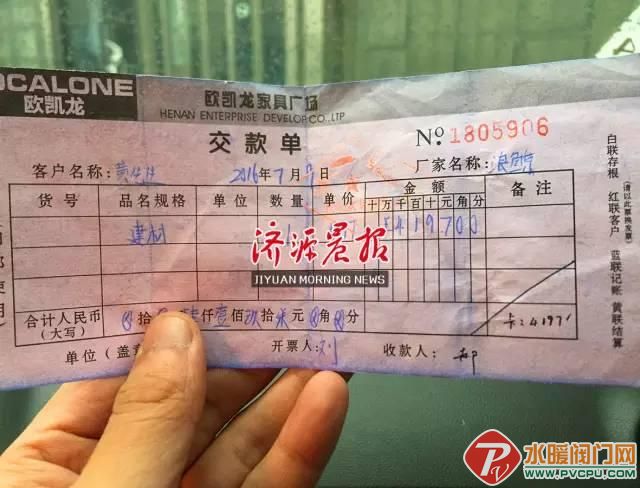 OCALONE
欧凯龙
欧凯龙家具广场
HENAN ENTERPRISE DEVELOP CO.,LTP
交款单
№ 1805906
客户名称:
2016年7月 日
厂家名称:
货号 品名规格 单位 数量 单价 金额 备注
十 万 千 百 十 元 角 分
建材 1 419700
济源晨报
JIYUAN MORNING NEWS
合计人民币
(大写)
拾 仟壹佰玖拾柒元 角 分
卡:4197
单位(盖章
开票人:刘
收款人:
白联存根 红联客户 蓝联记帐 黄联结算
(请以此票换发票)
水暖阀门网
WWW.PVCPU.COM